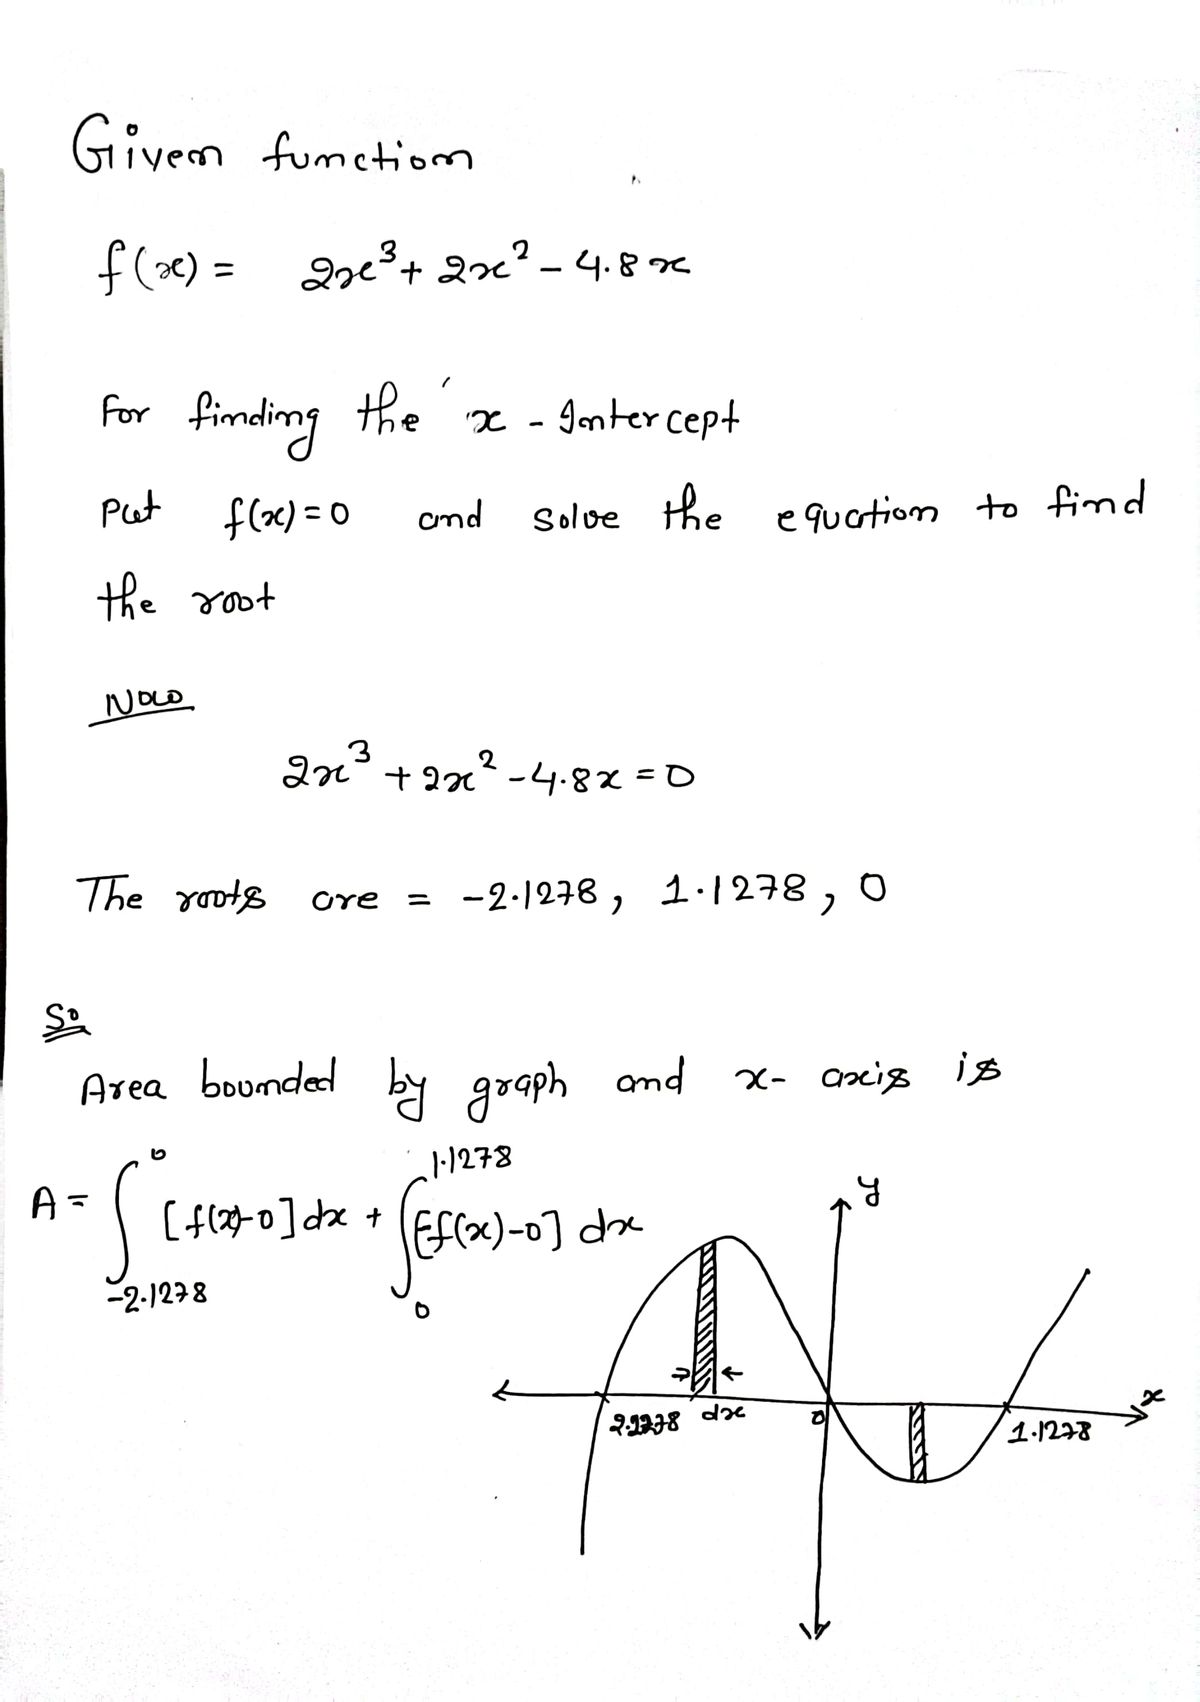 Given function
f(x) = 2x³ + 2x² - 4.8x
For finding the x - Intercept
Put f(x) = 0 and solve the equation to find
the root
Now
2x³ + 2x² - 4.8x = 0
The roots are = -2.1278, 1.1278, 0
So
Area bounded by graph and x- axis is
A = ∫_{-2.1278}^{0} [f(x)-0] dx + ∫_{0}^{1.1278} [f(x)-0] dx
y
x
2.1278 dx 0 1.1278